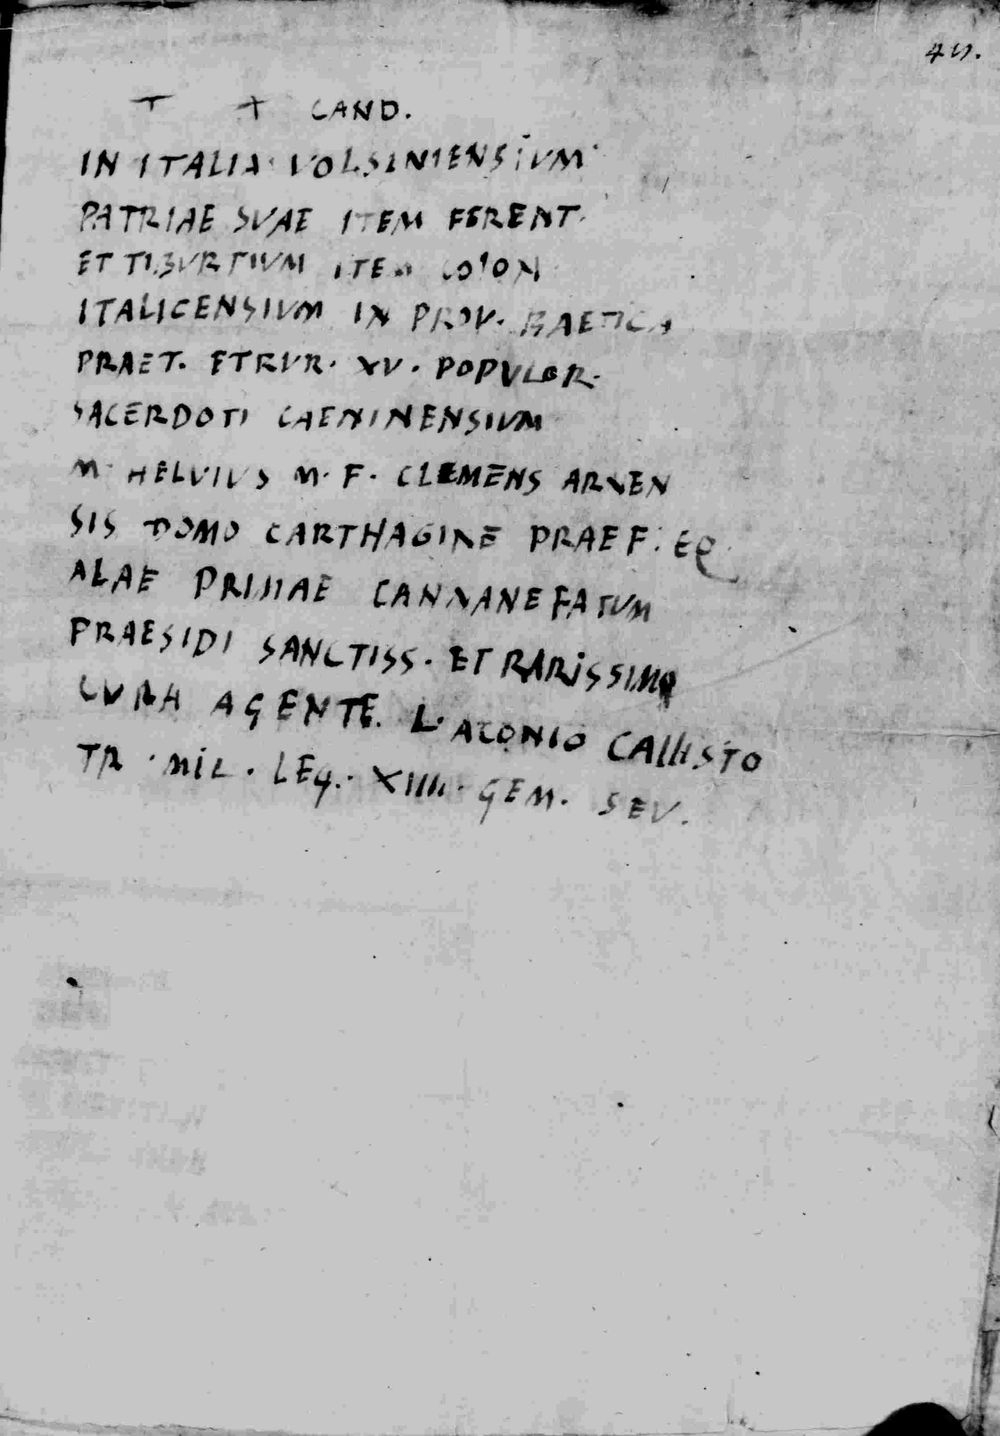 CAND.
IN ITALIA· VOLSINIENSIVM·
PATRIAE SVAE ITEM FERENT·
ET TIBVRTIVM ITEM COLON
ITALICENSIVM IN PROV· BAETICA
PRAET. ETRVR· XV· POPVLOR·
SACERDOTI CAENINENSIVM
M· HELVIVS M· F· CLEMENS ARNEN
SIS DOMO CARTHAGINE PRAEF· EQ·
ALAE PRIMAE CANNANEFATVM
PRAESIDI SANCTISS· ET RARISSIMO
CVRA AGENTE. L· ACONIO CALLISTO
TR· MIL· LEG· XIIII· GEM· SEV.